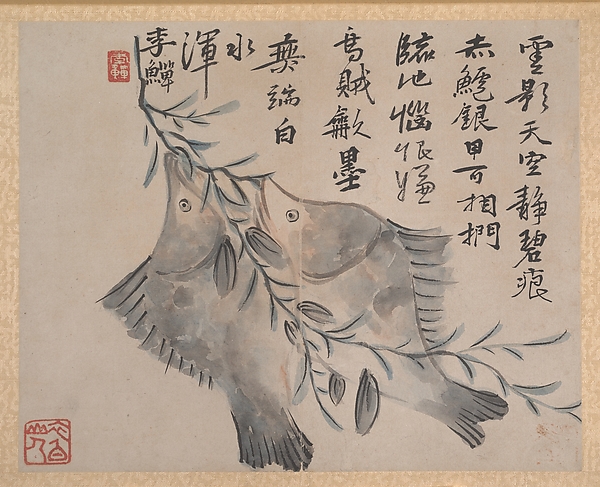 雲影天空靜碧痕
赤銀甲可相捫
臨池惱恨嫌
烏賊歕墨
無端白
水
渾
李鱓